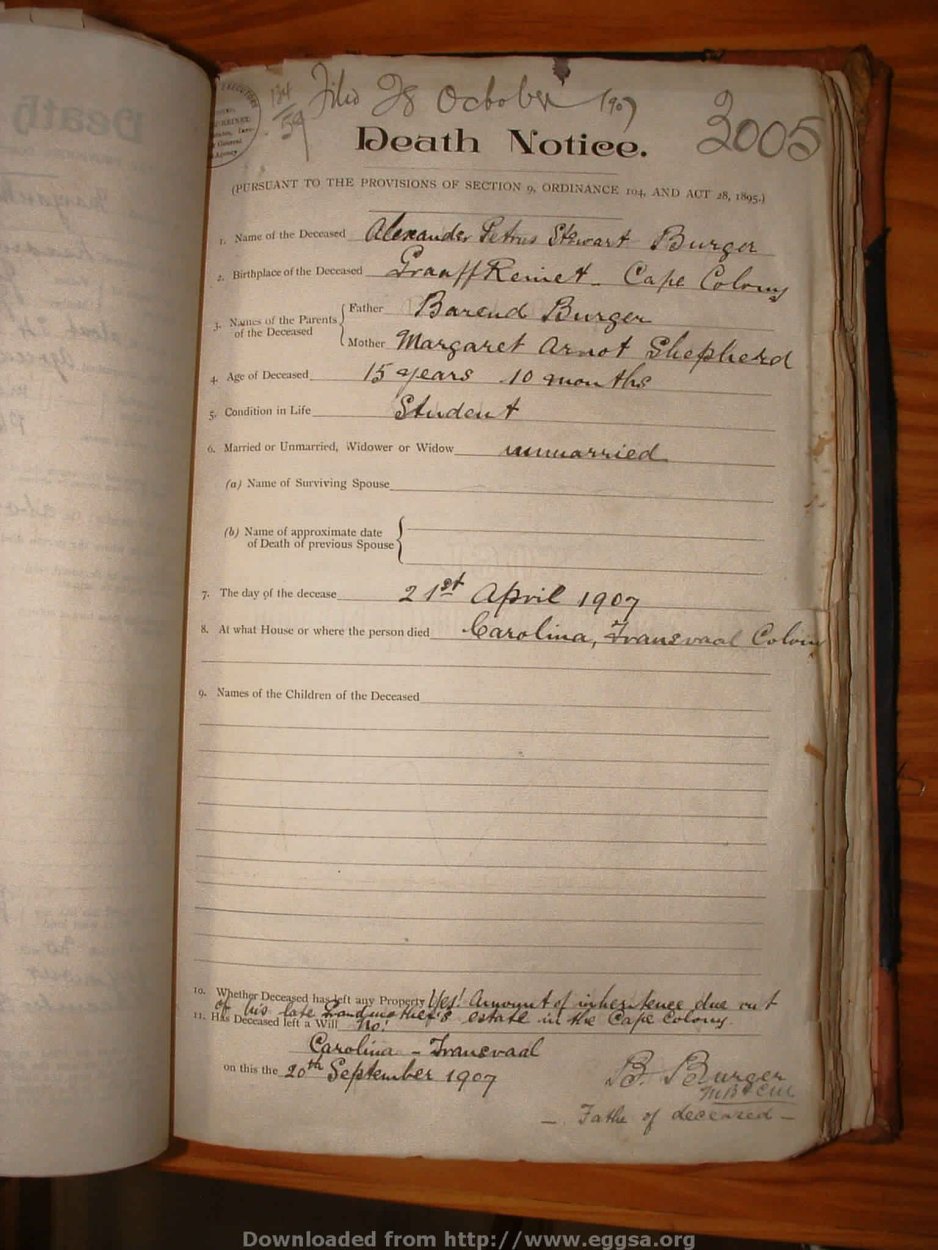 134
54
Filed 28 October 1907
3005
Death Notice.
(PURSUANT TO THE PROVISIONS OF SECTION 9, ORDINANCE 104, AND ACT 28, 1895.)
1. Name of the Deceased Alexander Petrus Stewart Burger
2. Birthplace of the Deceased Graaff Reinet - Cape Colony
3. Names of the Parents of the Deceased { Father Barend Burger
Mother Margaret Arnot Shepherd
4. Age of Deceased 15 years 10 months
5. Condition in Life Student
6. Married or Unmarried, Widower or Widow unmarried
(a) Name of Surviving Spouse
(b) Name of approximate date
of Death of previous Spouse {
7. The day of the decease 21st April 1907
8. At what House or where the person died Carolina, Transvaal Colony
9. Names of the Children of the Deceased
10. Whether Deceased has left any Property Yes! Amount of inheritence due out
of his late Grandmother's estate in the Cape Colony.
11. Has Deceased left a Will No!
Carolina - Transvaal
on this the 20th September 1907
B. Burger
Father of deceased -
Downloaded from http://www.eggsa.org